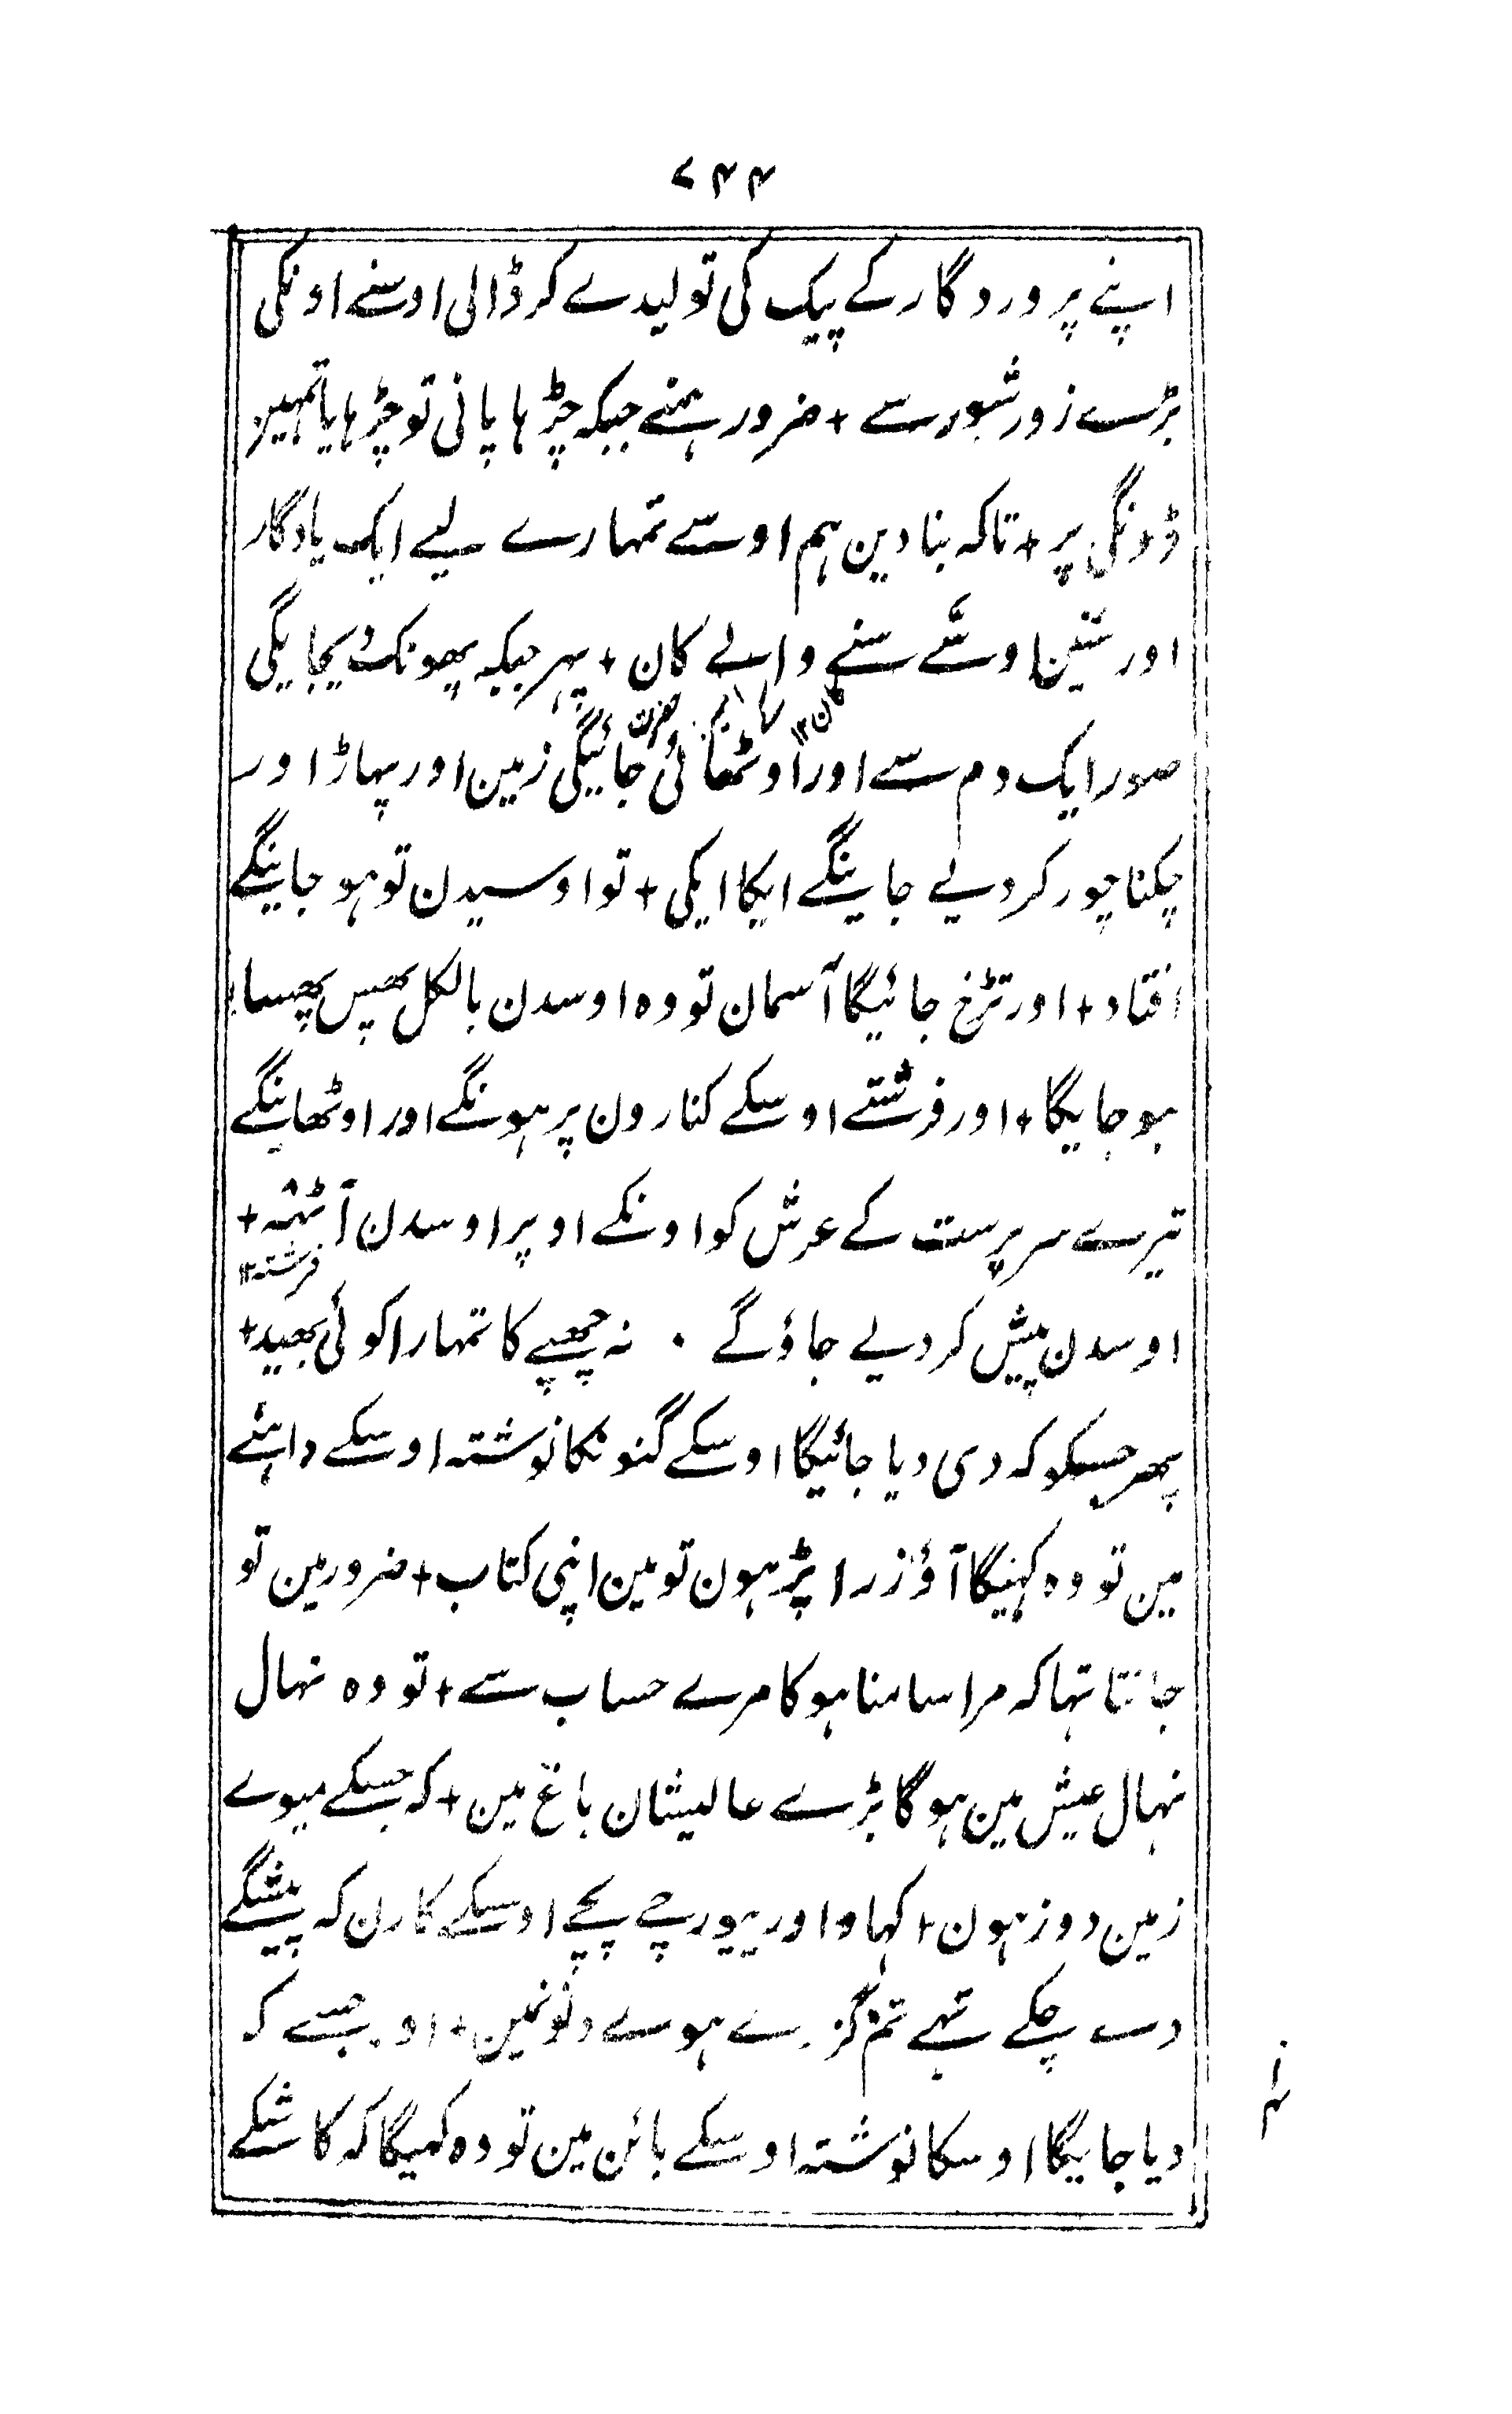 ۷۴۴
اپنے پروردگار کے پیک کی تو لیدے کر ڈالی اوسنے اونکی
بڑے زور شور سے + ضرور ہمنے جبکہ چڑہا پانی تو چڑہایا تمہین
ڈونگی پر + تاکہ بنادین ہم اوسے تمہارے لیے ایک یادگار
اور سنین اوسے سننے والے کان + پہر جبکہ پھونک دیجایگی
صور ایک دم سے اور اوٹھائی جائیگی زمین اور پہاڑ اور
چکناچور کردیے جاینگے ایکا ایکی + تو اوسیدن تو ہو جاینگے
افتاد + اور تڑخ جائیگا آسمان تو وہ اوسدن بالکل پھس پھسا
ہو جایگا + اور فرشتے اوسکے کنارون پر ہونگے اور اوٹھاینگے
تیرے سرپرست کے عرش کو اونکے اوپر اوسدن آٹہہ +
فرشتہ ۱۲
اوسدن پیش کردیے جاؤگے نہ چھپے کا تمہارا کوئی بھید +
پھر جسکو کہ دی دیا جائیگا اوسکے گنونکا نوشتہ اوسکے داہنے
مین تو وہ کہنیگا آؤ زرا پڑہون تو مین اپنی کتاب + ضرور مین تو
جانتا تہا کہ مرا سامنا ہوکا مرے حساب سے + تو وہ نہال
نہال عیش مین ہوگا بڑے عالیشان باغ مین + کہ جسکے میوے
زمین دوز ہون + کہاو اور پیو رچے پچے اوسکے کارن کہ پیشگے
دے چکے تہے تم گزرے ہوے دنونمین + اور جسے کہ
دیا جایگا اوسکا نوشتہ اوسکے بائن مین تو وہ کہیگا کہ کاشکے